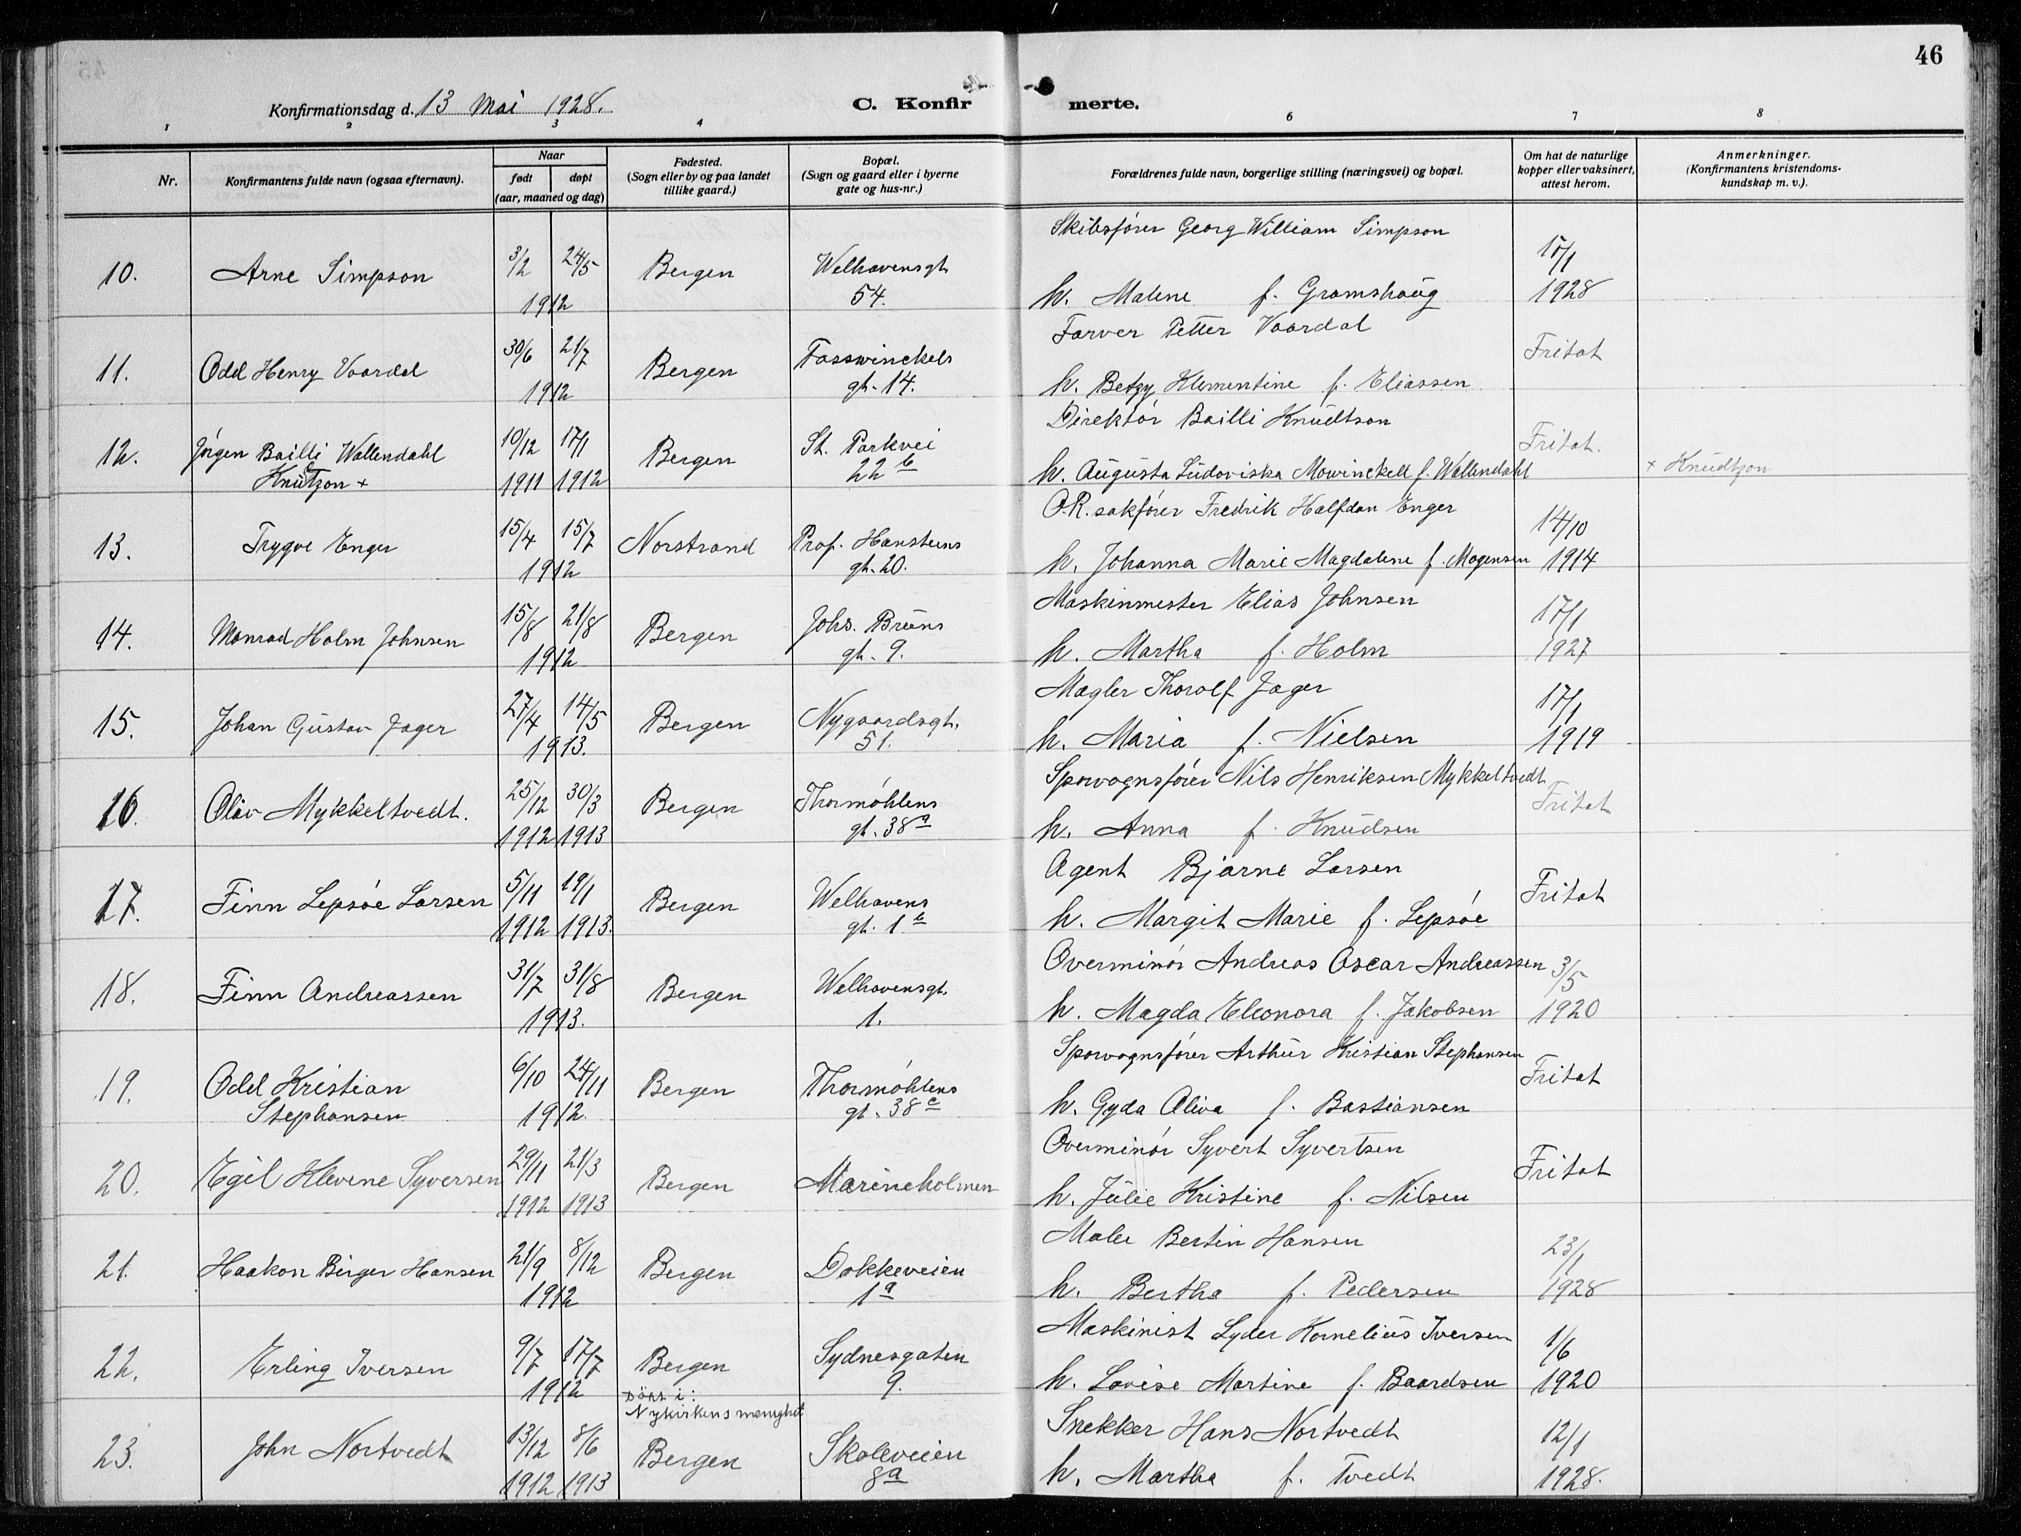 46
Konfirmationsdag d. 13 Mai 1928.
C. Konfirmerte.
1 2 3 4 6 7 8
Nr.
Konfirmantens fulde navn (ogsaa efternavn).
Naar
født døpt
(aar, maaned og dag)
Fødested.
(Sogn eller by og paa landet
tillike gaard.)
Bopæl.
(Sogn og gaard eller i byerne
gate og hus-nr.)
Forældrenes fulde navn, borgerlige stilling (næringsvei) og bopæl.
Om hat de naturlige
kopper eller vaksinert,
attest herom.
Anmerkninger.
(Konfirmantens kristendoms-
kundskap m. v.).
Skibsfører Georg William Simpson
10. Arne Simpson 3/2 24/5 Bergen Welhavensgt. 17/1
1912 54. h. Malene f. Gramshaug 1928
Farver Petter Vaardal
11. Odd Henry Vaardal 30/6 21/7 Bergen Fosswinckels Fritat
1912 gt. 14. h. Betzy Klementine f. Eliassen
Direktør Bailli Knudtson
12. Jørgen Bailli Wallendahl 10/12 17/1 Bergen St. Parkvei Fritat.
Knutzon + 1911 1912 22 b h. Augusta Ludoviska Mowinckell f. Wallendahl + Knudtzon
O.R. sakfører Fredrik Halfdan Enger
13. Trygve Enger 15/4 15/7 Norstrand Prof. Hansteens 14/10
1912 gt. 20. h. Johanna Marie Magdalene f. Mogensen 1914
Maskinmester Elias Johnsen
14. Monrad Holm Johnsen 15/8 21/8 Bergen Johs. Bruns 17/1
1912 gt. 9. h. Martha f. Holm 1927
Mægler Thorolf Jager
15. Johan Gustav Jager 27/4 14/5 Bergen Nygaardsgt. 17/1
1913. 51. h. Maria f. Nielsen 1919
Sporvognsfører Nils Henriksen Mykkeltvedt
16. Olav Mykkeltvedt. 25/12 30/3 Bergen Thormøhlens Fritat
1912 1913 gt. 38 a h. Anna f. Knudsen
Agent Bjarne Larsen
17. Finn Lepsøe Larsen 5/11 19/1 Bergen Welhavens Fritat
1912 1913. gt. 1 b h. Margit Marie f. Lepsøe
Overminør Andreas Oscar Andreassen
18. Finn Andreassen 31/7 31/8 Bergen Welhavensgt. 3/5
1913. 1. h. Magda Eleonora f. Jakobsen 1920
Sporvognsfører Arthur Kristian Stephansen
19. Odd Kristian 6/10 24/11 Bergen Thormøhlens Fritat
Stephansen 1912. gt. 38 c h. Gyda Oliva f. Bastiansen
Overminør Syvert Syvertsen
20. Egil Klevene Syversen 29/11 21/3 Bergen Marineholmen Fritat
1912 1913 h. Julie Kristine f. Nilsen
Maler Bertin Hansen
21. Haakon Birger Hansen 21/9 8/12 Bergen Dokkeveien 23/1
1912 1 a h. Bertha f. Pedersen 1928
Maskinist Lyder Kornelius Iversen
22. Erling Iversen 9/7 17/7 Bergen Sydnesgaten 1/6
1912 9. h. Lovise Martine f. Baardsen 1920
Døpt i:
Nykirkens menighet
Snekker Hans Nortvedt
23. John Nortvedt 13/12 8/6 Bergen Skoleveien 12/1
1912 1913 8 a h. Martha f. Tvedt 1928.